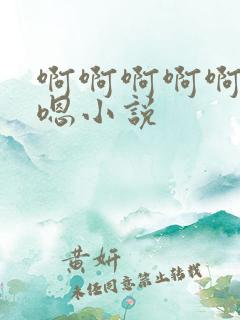 啊啊啊啊啊
嗯小说
黄妍
未经同意禁止转载